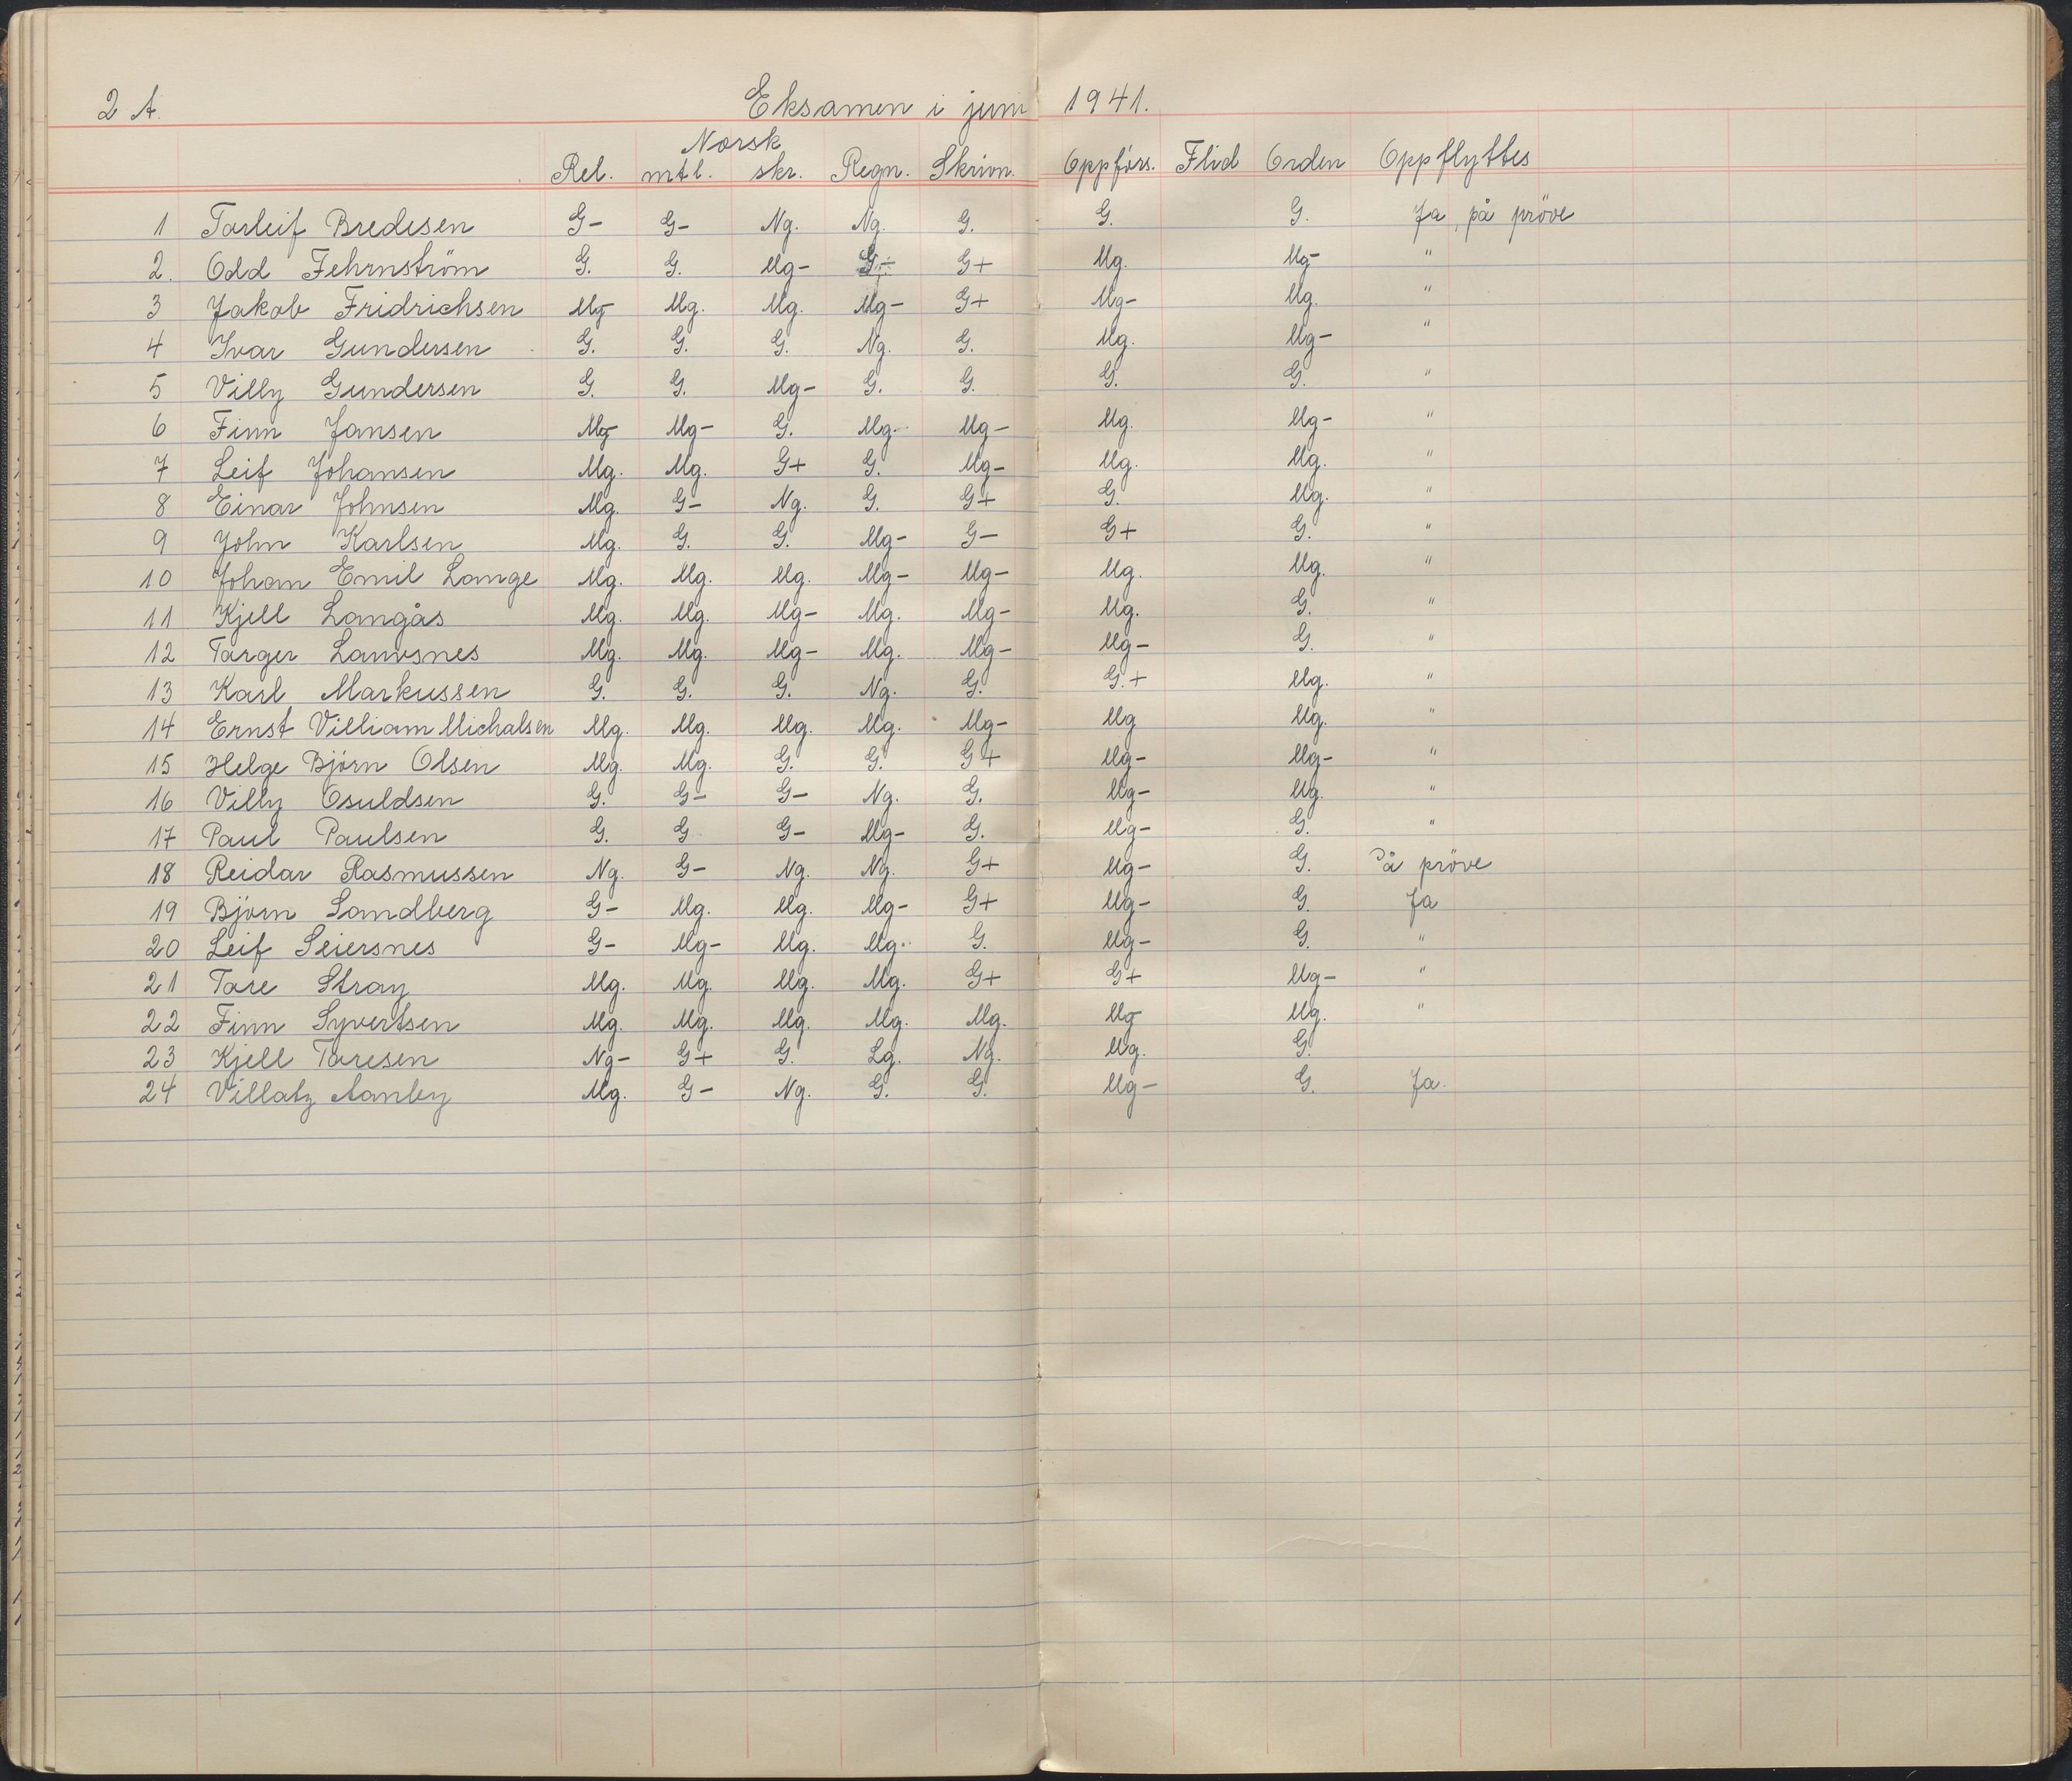 2 A. Eksamen i juni 1941.
Norsk
Rel. mtl. skr. Regn. Skrivn. Oppförs. Flid Orden Oppflyttes
1 Torleif Bredesen G- G- Ng. Ng. G. G. G. Ja, på pröve
2. Odd Fehrnström G. G. Mg- G+ Mg. Mg- "
3 Jakob Fridrichsen Mg- Mg. Mg. Mg- G+ Mg- Mg. "
4 Ivar Gundersen G. G. G. Ng. G. Mg. Mg- "
5 Villy Gundersen G. G. Mg- G. G. G. G. "
6 Finn Jansen Mg- Mg- G. Mg- Mg- Mg. Mg- "
7 Leif Johansen Mg. Mg. G+ G. Mg- Mg. Mg. "
8 Einar Johnsen Mg. G- Ng. G. G+ G. Mg. "
9 John Karlsen Mg. G. G. Mg- G- G+ G. "
10 Johan Emil Lange Mg. Mg. Mg. Mg- Mg- Mg. Mg. "
11 Kjell Langås Mg. Mg. Mg- Mg. Mg- Mg. G. "
12 Torger Lauvsnes Mg. Mg. Mg- Mg. Mg- Mg- G. "
13 Karl Markussen G. G. G. Ng. G. G.+ Mg. "
14 Ernst Villiam Michalsen Mg. Mg. Mg. Mg. Mg- Mg Mg. "
15 Helge Björn Olsen Mg. Mg. G. G. G+ Mg- Mg- "
16 Villy Osuldsen G. G- G- Ng. G. Mg- Mg. "
17 Paul Paulsen G. G G- Mg- G. Mg- G. "
18 Reidar Rasmussen Ng. G- Ng. Ng. G+ Mg- G. På pröve
19 Björn Sandberg G- Mg. Mg. Mg- G+ Mg- G. Ja
20 Leif Seiersnes G- Mg- Mg. Mg- G. Mg- G. "
21 Tore Stray Mg. Mg. Mg. Mg. G+ G+ Mg- "
22 Finn Syvertsen Mg. Mg. Mg. Mg. Mg. Mg- Mg. "
23 Kjell Toresen Ng- G+ G. Lg. Ng. Mg. G.
24 Villatz Aanby Mg. G- Ng. G. G. Mg- G. Ja.